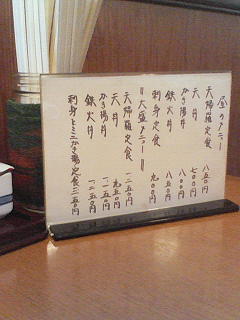 昼のメニュー
天婦羅定食 八五〇円
天丼 七〇〇円
かき揚丼 八〇〇円
鉄火丼 八五〇円
刺身定食 九〇〇円
〃大盛メニュー〃
天婦羅定食 一二五〇円
天丼 九五〇円
かき揚丼 一一五〇円
鉄火丼 一二五〇円
刺身とミニかき揚定食 一三五〇円